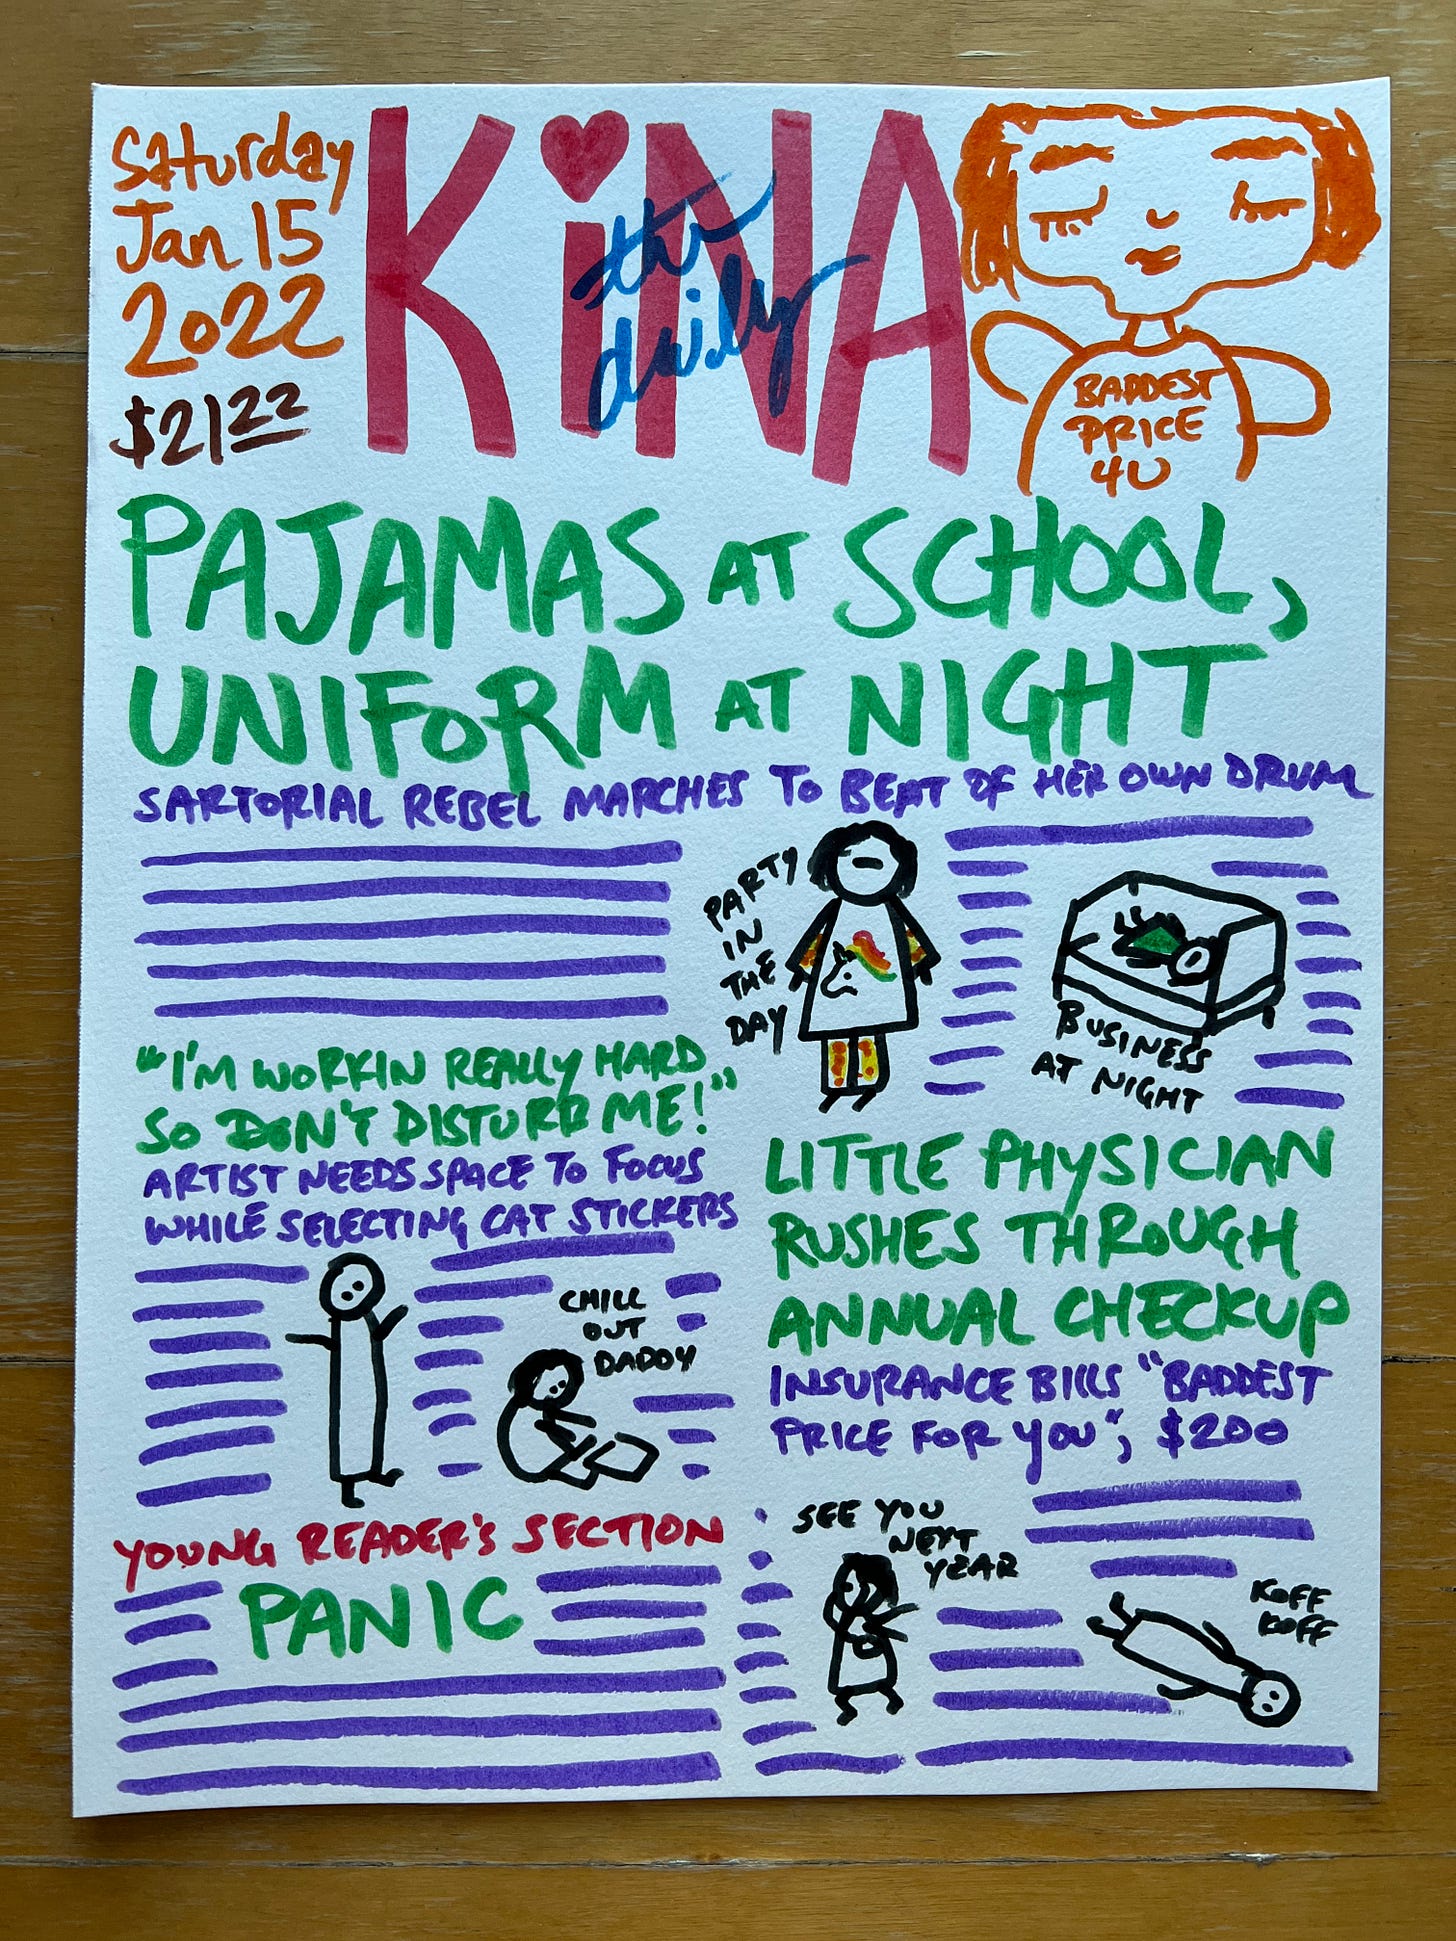 Saturday
Jan 15
2022
$21 22
KiNA
the
daily
BADDEST
PRICE
4U
PAJAMAS AT SCHOOL,
UNIFORM AT NIGHT
SARTORIAL REBEL MARCHES TO BEAT OF HER OWN DRUM
PARTY
IN
THE
DAY
BUSINESS
AT NIGHT
"I'M WORKIN REALLY HARD
SO DON'T DISTURB ME!"
ARTIST NEEDS SPACE TO FOCUS
WHILE SELECTING CAT STICKERS
CHILL
OUT
DADDY
LITTLE PHYSICIAN
RUSHES THROUGH
ANNUAL CHECKUP
INSURANCE BILLS "BADDEST
PRICE FOR YOU", $200
SEE YOU
NEXT
YEAR
KOFF
KOFF
YOUNG READER'S SECTION
PANIC